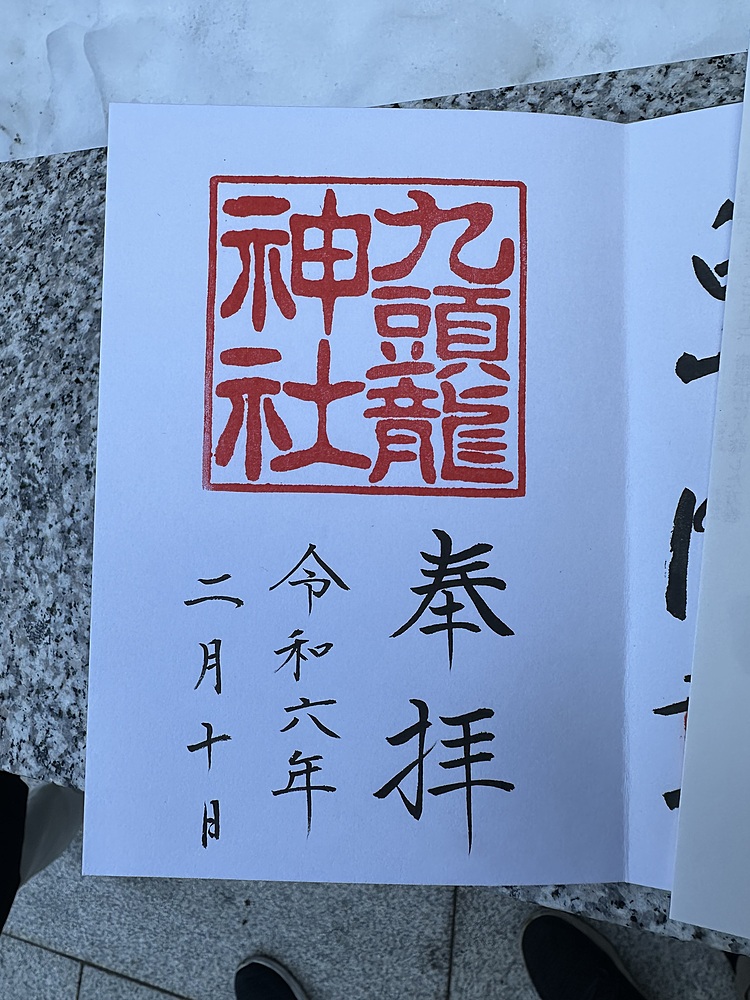 九頭龍
神社
奉拝
令和六年
二月十日